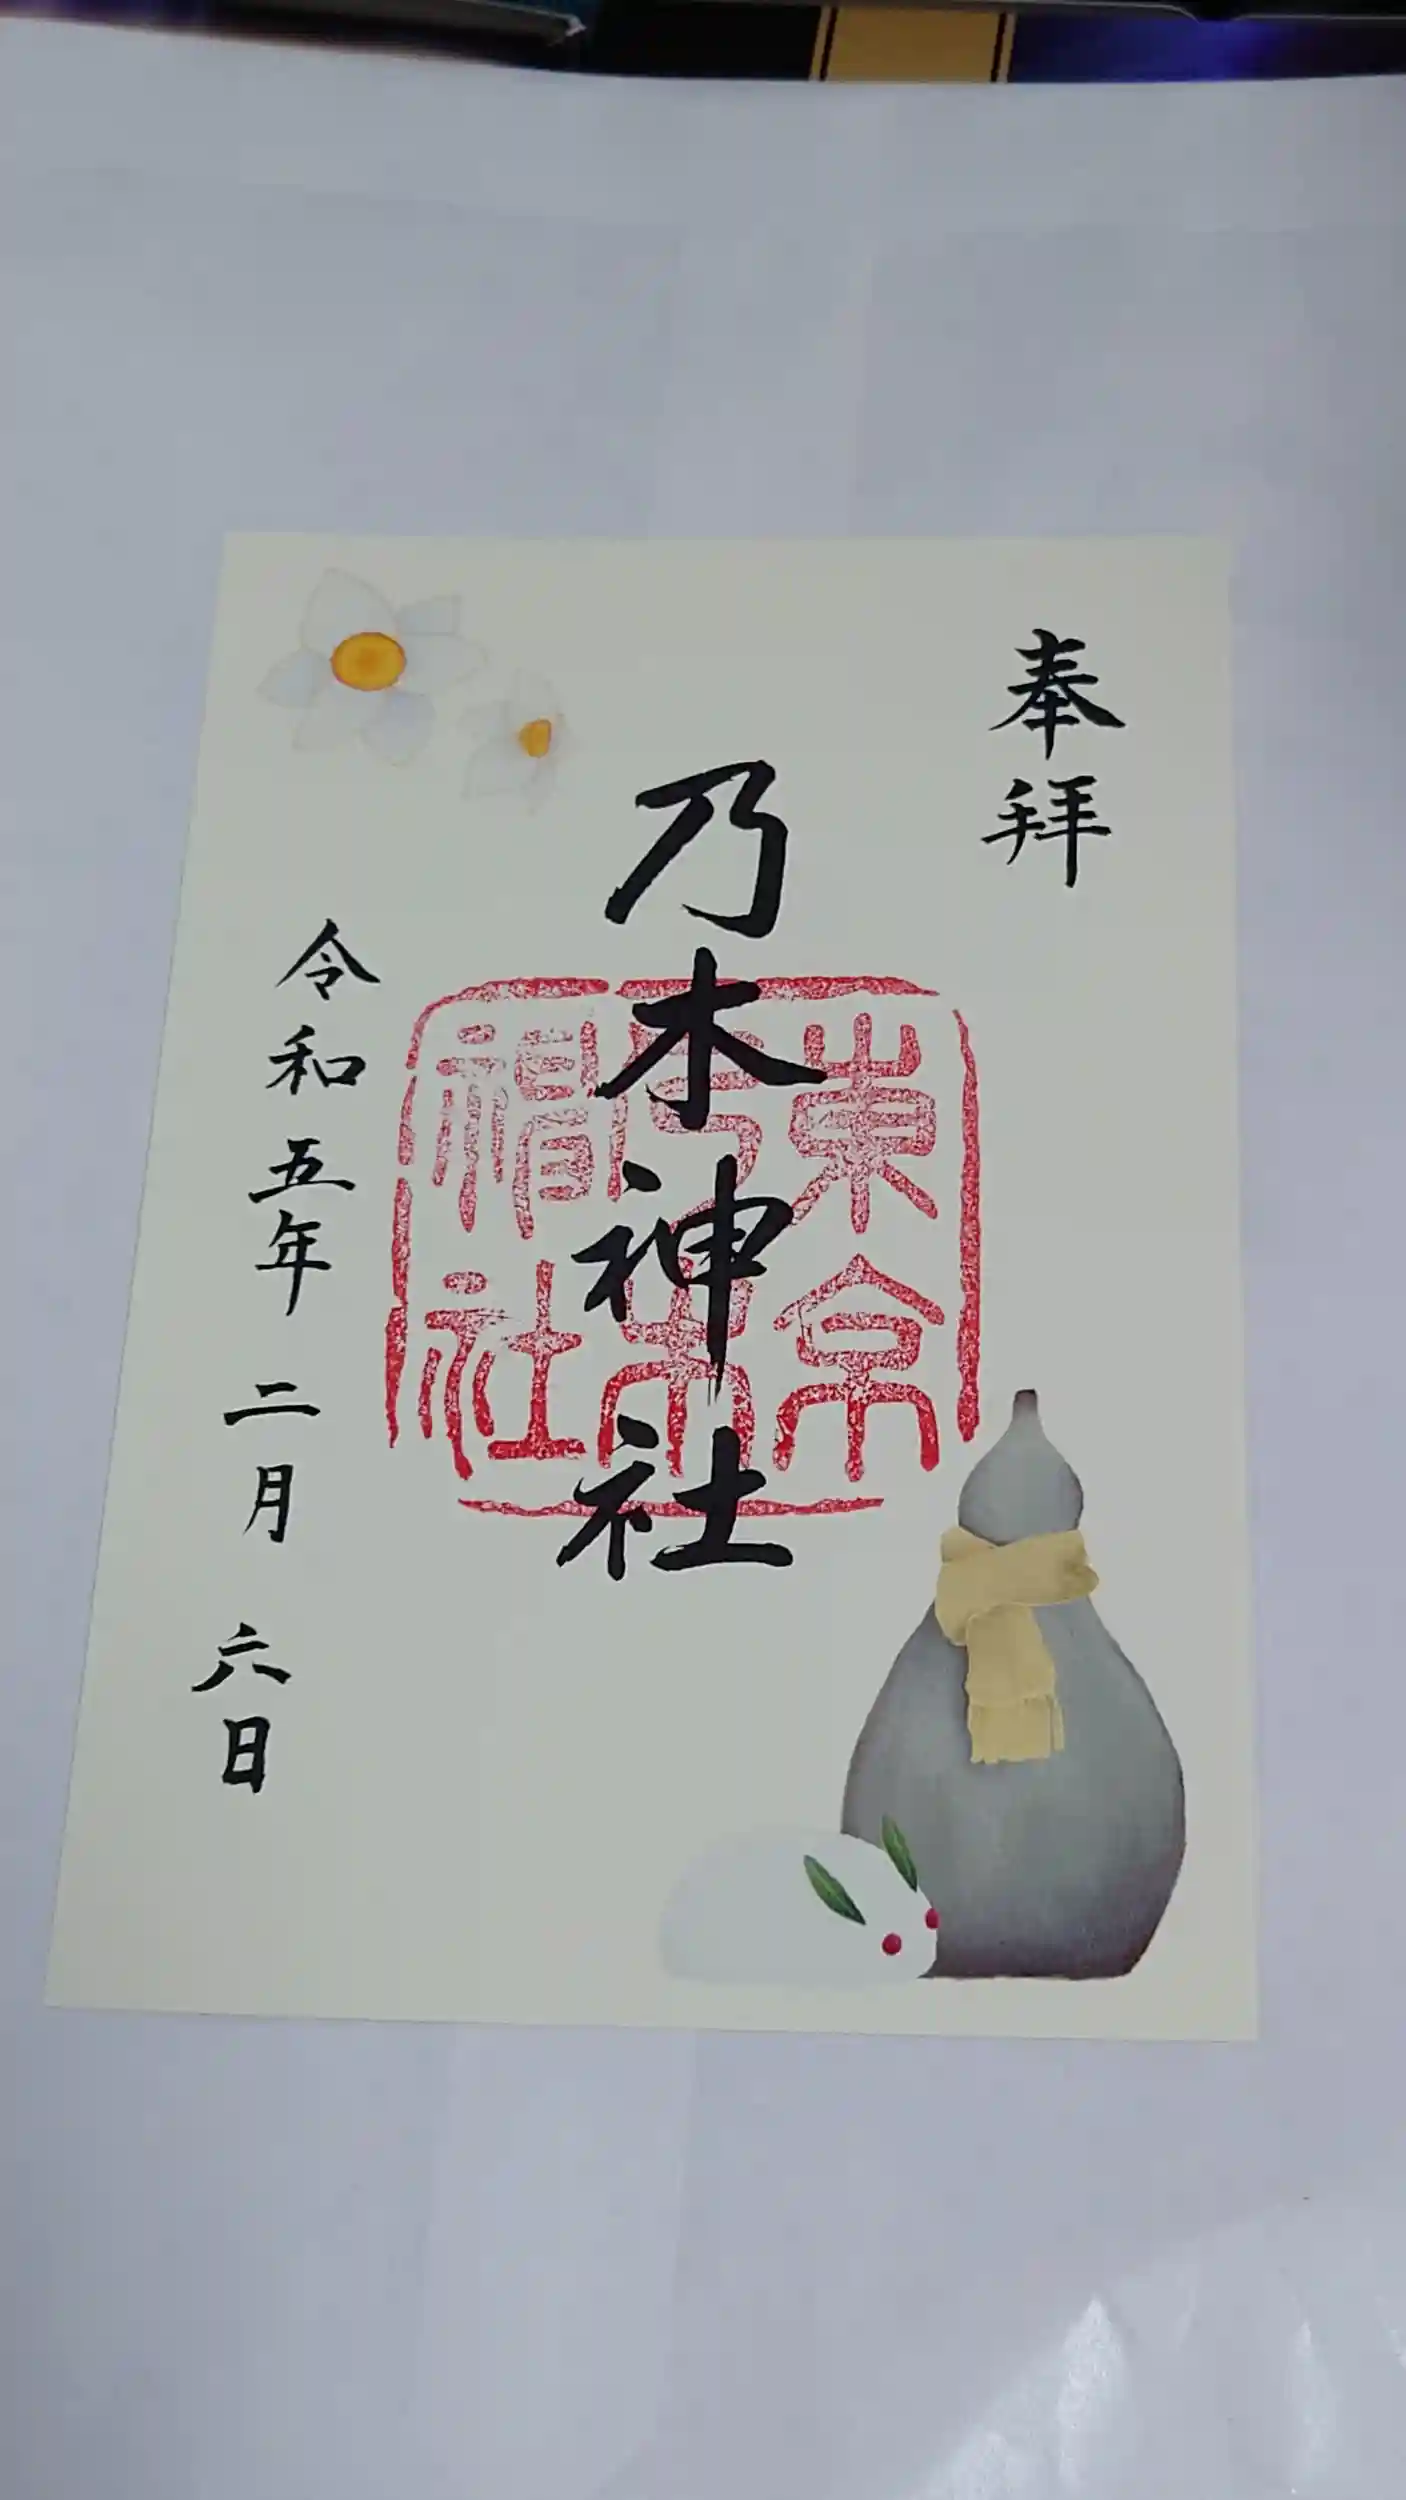 奉拝
乃木神社
東京
令和五年二月六日